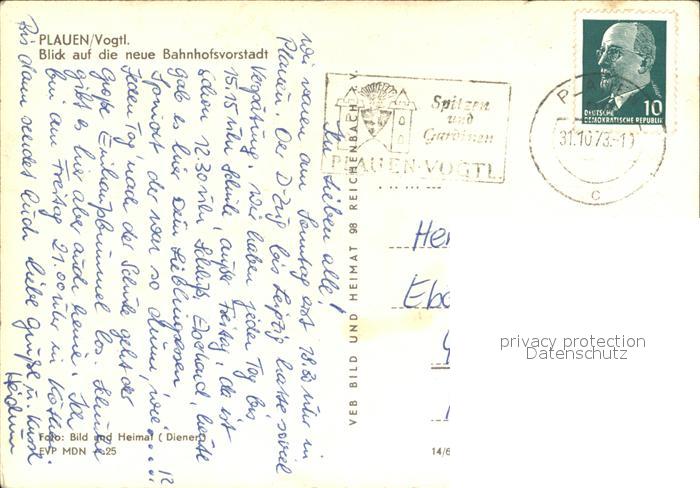 PLAUEN/Vogtl.
Blick auf die neue Bahnhofsvorstadt
Ihr Lieben alle!
Wir waren am Sonntag erst 18.30 Uhr in
Plauen. De D-Zug bis Leipzig hatte soviel
Verspätung. Wir haben jeden Tag bis
15.15 Uhr Schule, außer Freitag, da ist
schon 12.30 Uhr Schluß. Eberhard, heute
gab es hier Dein Lieblingsessen
Spinat der war so dünn, wie
Jeden Tag nach der Schule geht der
Große Einkaufsbummel los. Schuhe
gibt es hier aber auch keine. Ich
bin am Freitag 21.00 Uhr in
Bis dann sendet Euch liebe Grüße u. Küsse
Heidrun
Foto: Bild und Heimat (Diener)
EVP MDN 25
VEB BILD UND HEIMAT 98 REICHENBACH V
14/6
Spitzen
und
Gardinen
PLAUEN-VOGTL.
31.10.73
C
DEUTSCHE
DEMOKRATISCHE REPUBLIK
10
privacy protection
Datenschutz